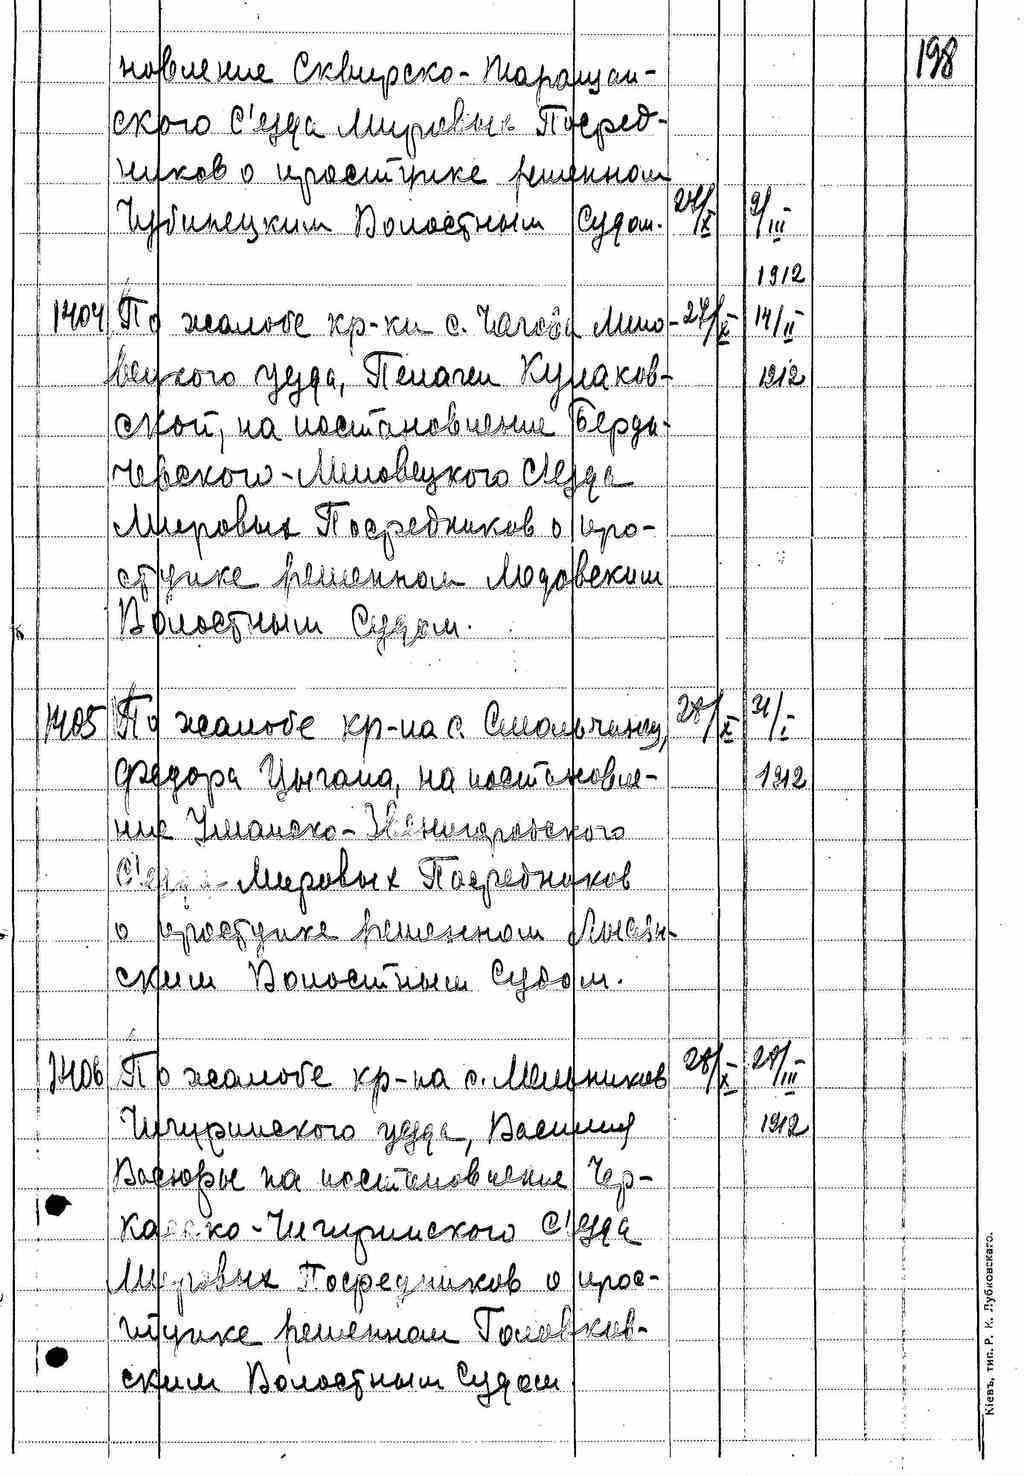 198
новление Сквирско-Таращан-
ского С'езда Мировых Посред-
ников о проступке решенном
Чубинецким Волостным Судом. 24/X 9/III
1912
1404 По жалобе кр-ки с. Чагова Липо- 27/X 14/II
вецкого уезда, Пелагеи Кулаков- 1912
ской, на постановление Берди-
чевского-Липовецкого С'езда
Мировых Посредников о про-
ступке решенном
Волостным Судом.
1405 По жалобе кр-на с. Смольчинец, 28/X 31/I
Федора Цыгана, на постановле- 1912
ние Уманско-Звенигородского
С'езда Мировых Посредников
о проступке решенном Лысян-
ским Волостным Судом.
1406 По жалобе кр-на с. Мельников 28/X 28/III
Чигиринского уезда, Василия 1912
Васюры на постановление Чер-
касско-Чигиринского С'езда
Мировых Посредников о прос-
тупке решенном Головков-
ским Волостным Судом
Кіевъ, тип. Р. К. Лубковскаго.